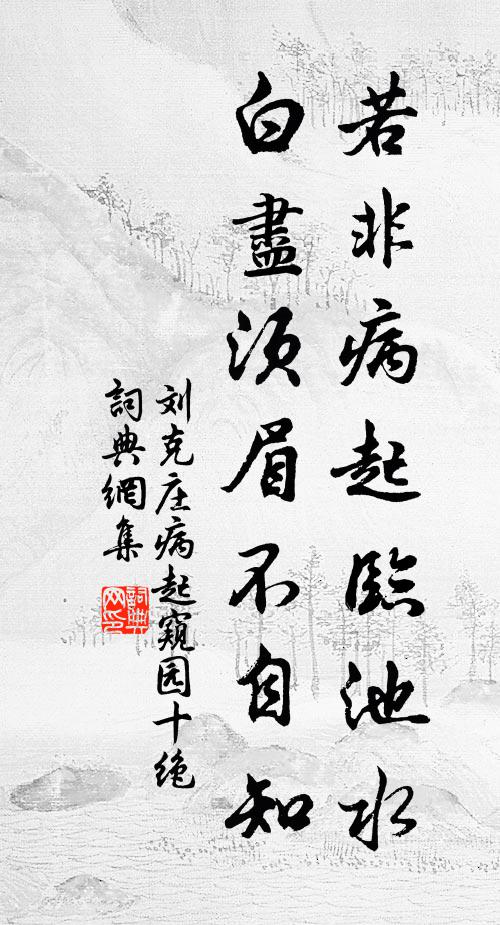 若非病起臨池水
白盡須眉不自知
刘克庄病起窺园十绝
詞典網集
詞典
网印